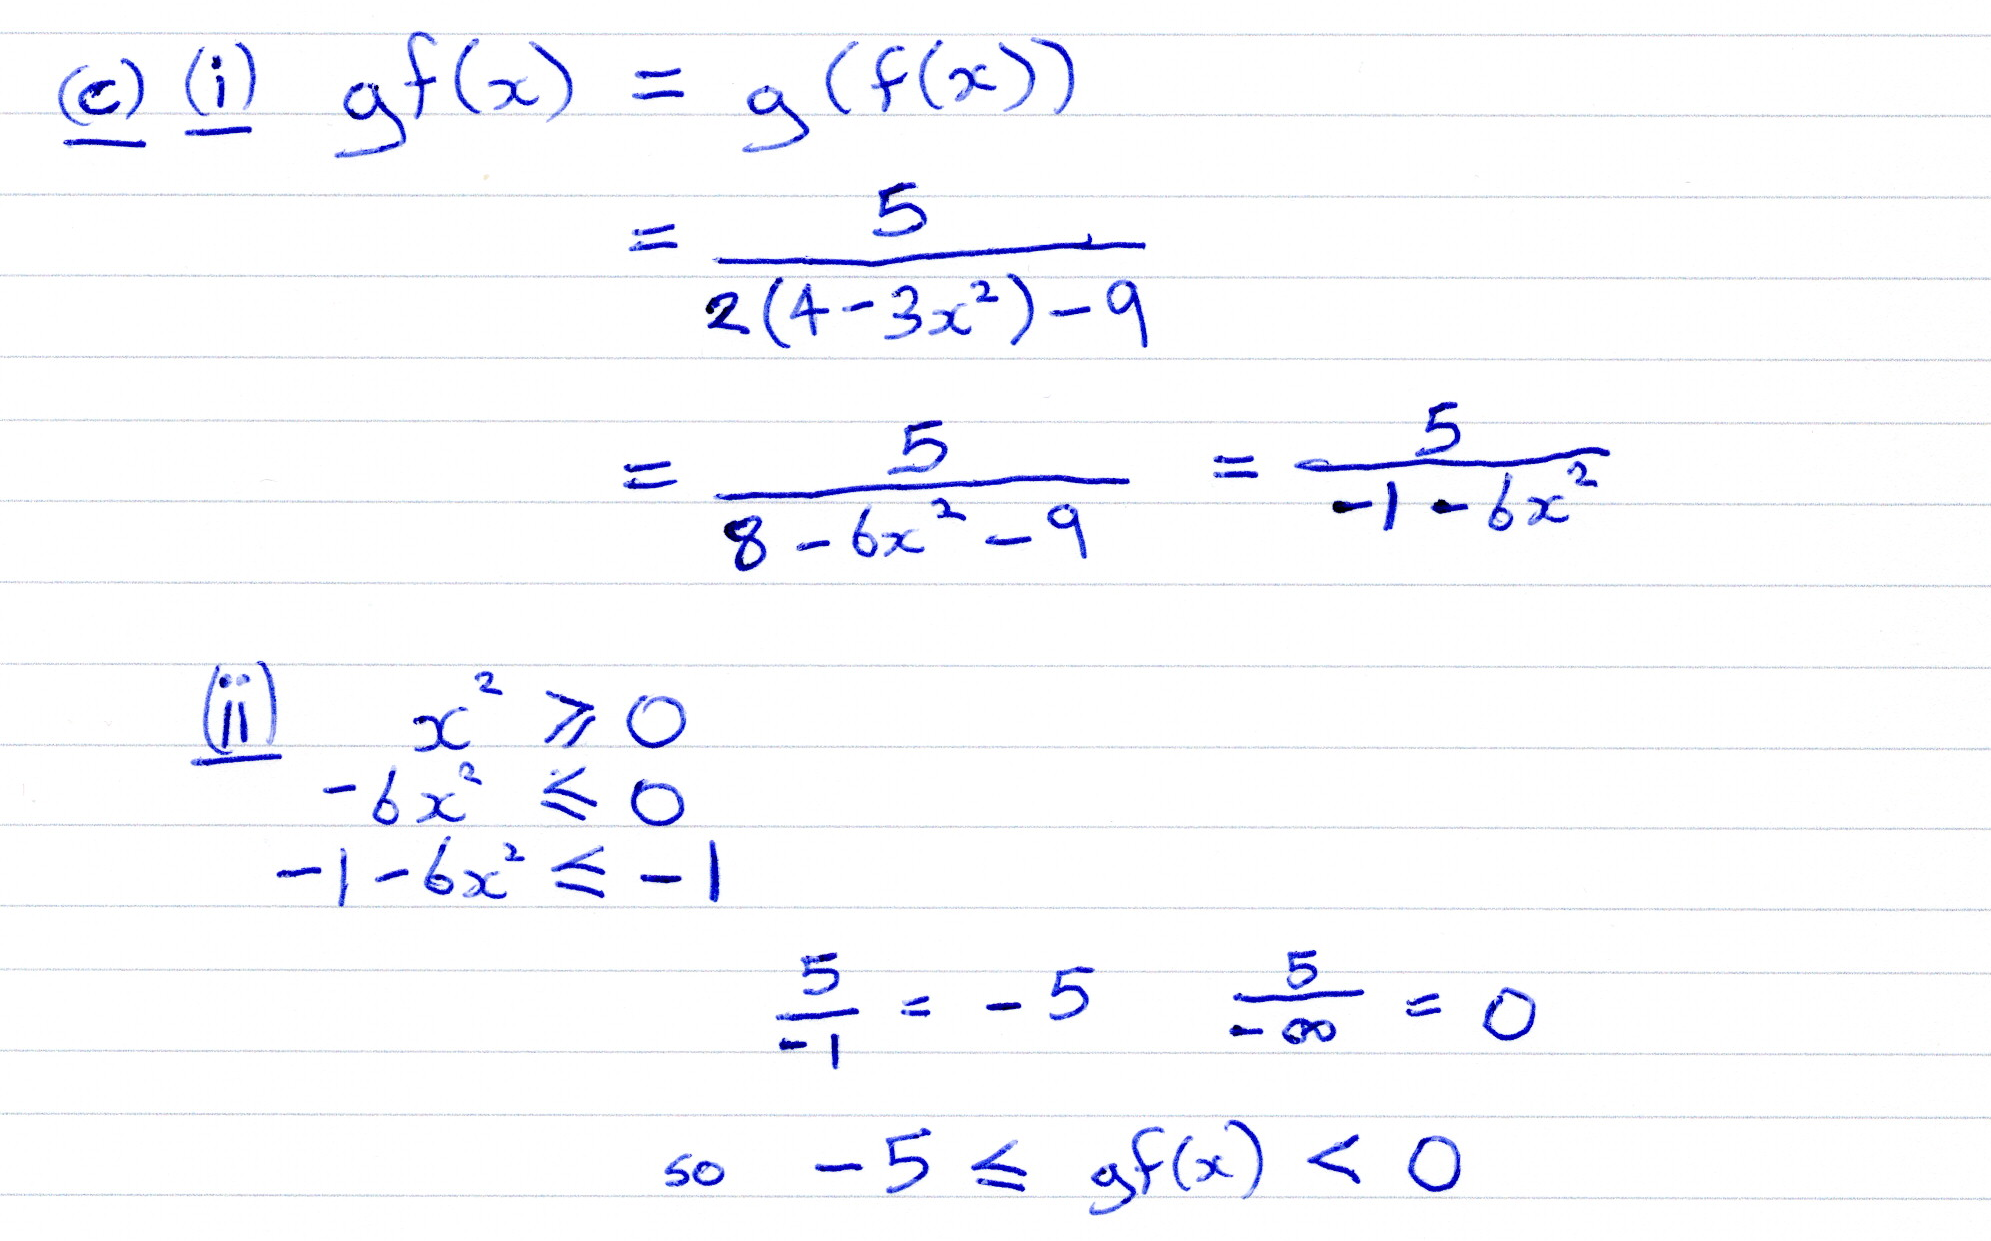 (c) (i) gf(x) = g(f(x))
= 5/(2(4-3x²)-9)
= 5/(8-6x²-9) = 5/(-1-6x²)
(ii) x² ⩾ 0
-6x² ⩽ 0
-1-6x² ≤ -1
5/-1 = -5 5/-∞ = 0
so -5 ≤ gf(x) < 0